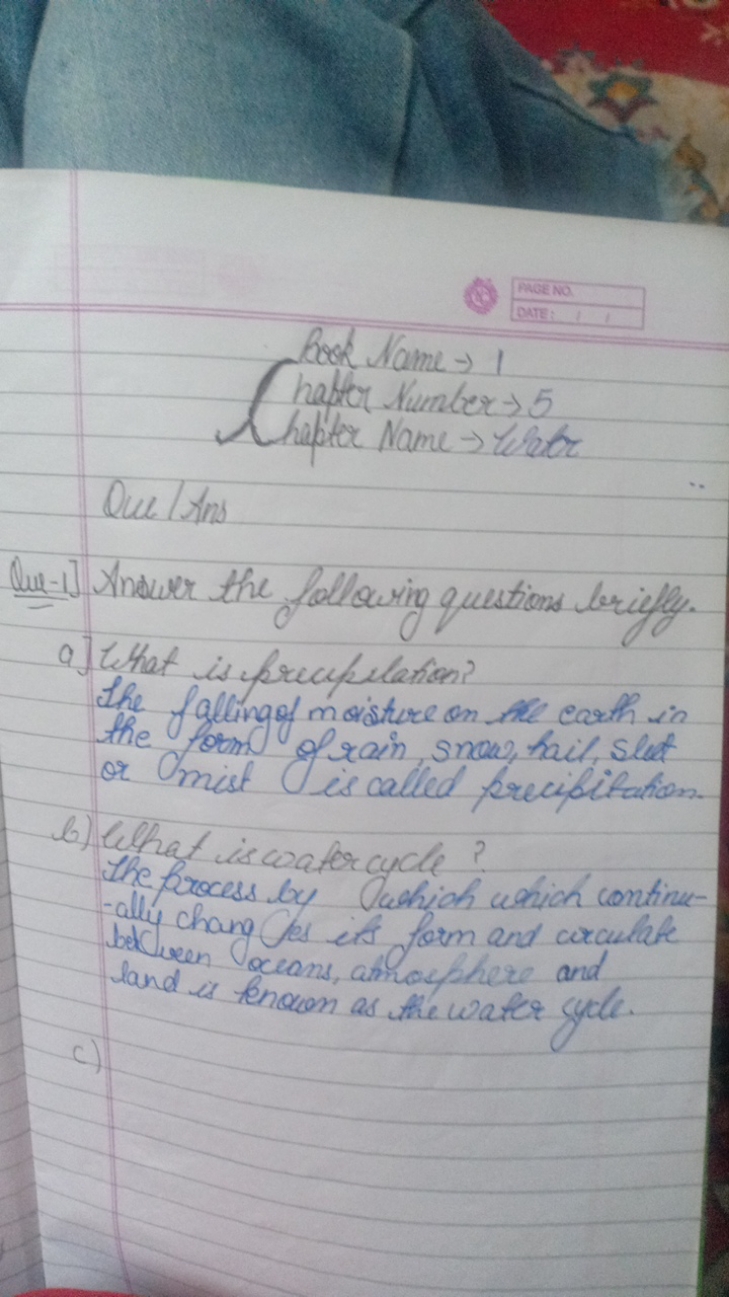 PAGE NO.
DATE: / /
Book Name → 1
Chapter Number → 5
Chapter Name → Water
Que / Ans
Que-1] Answer the following questions briefly.
a] What is precipilation?
The falling of moisture on the earth in
the form of rain, snow, hail, sleet
or mist is called precipitation.
b) What is water cycle ?
The process by which which continu-
-ally changes its form and circulate
between oceans, atmosphere and
land is known as the water cycle.
c)